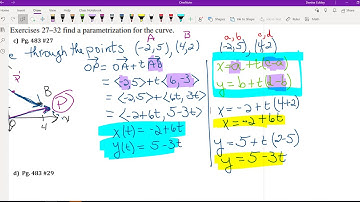 Exercises 27–32 find a parametrization for the curve.
c) Pg. 483 #27
A B
e through the points (-2,5), (4,2)
OP = OA + t AB
= <-2,5> + t<6,-3>
= <-2,5> + <6t, 3t>
= <-2+6t, 5-3t>
x(t) = -2+6t
y(t) = 5-3t
B
P
4
d) Pg. 483 #29
a, b c, d
(-2,5), (4,2)
x = a + t(c-a)
y = b + t(d-b)
x = -2 + t(4+2)
x = -2 + 6t
y = 5 + t(2-5)
y = 5 - 3t